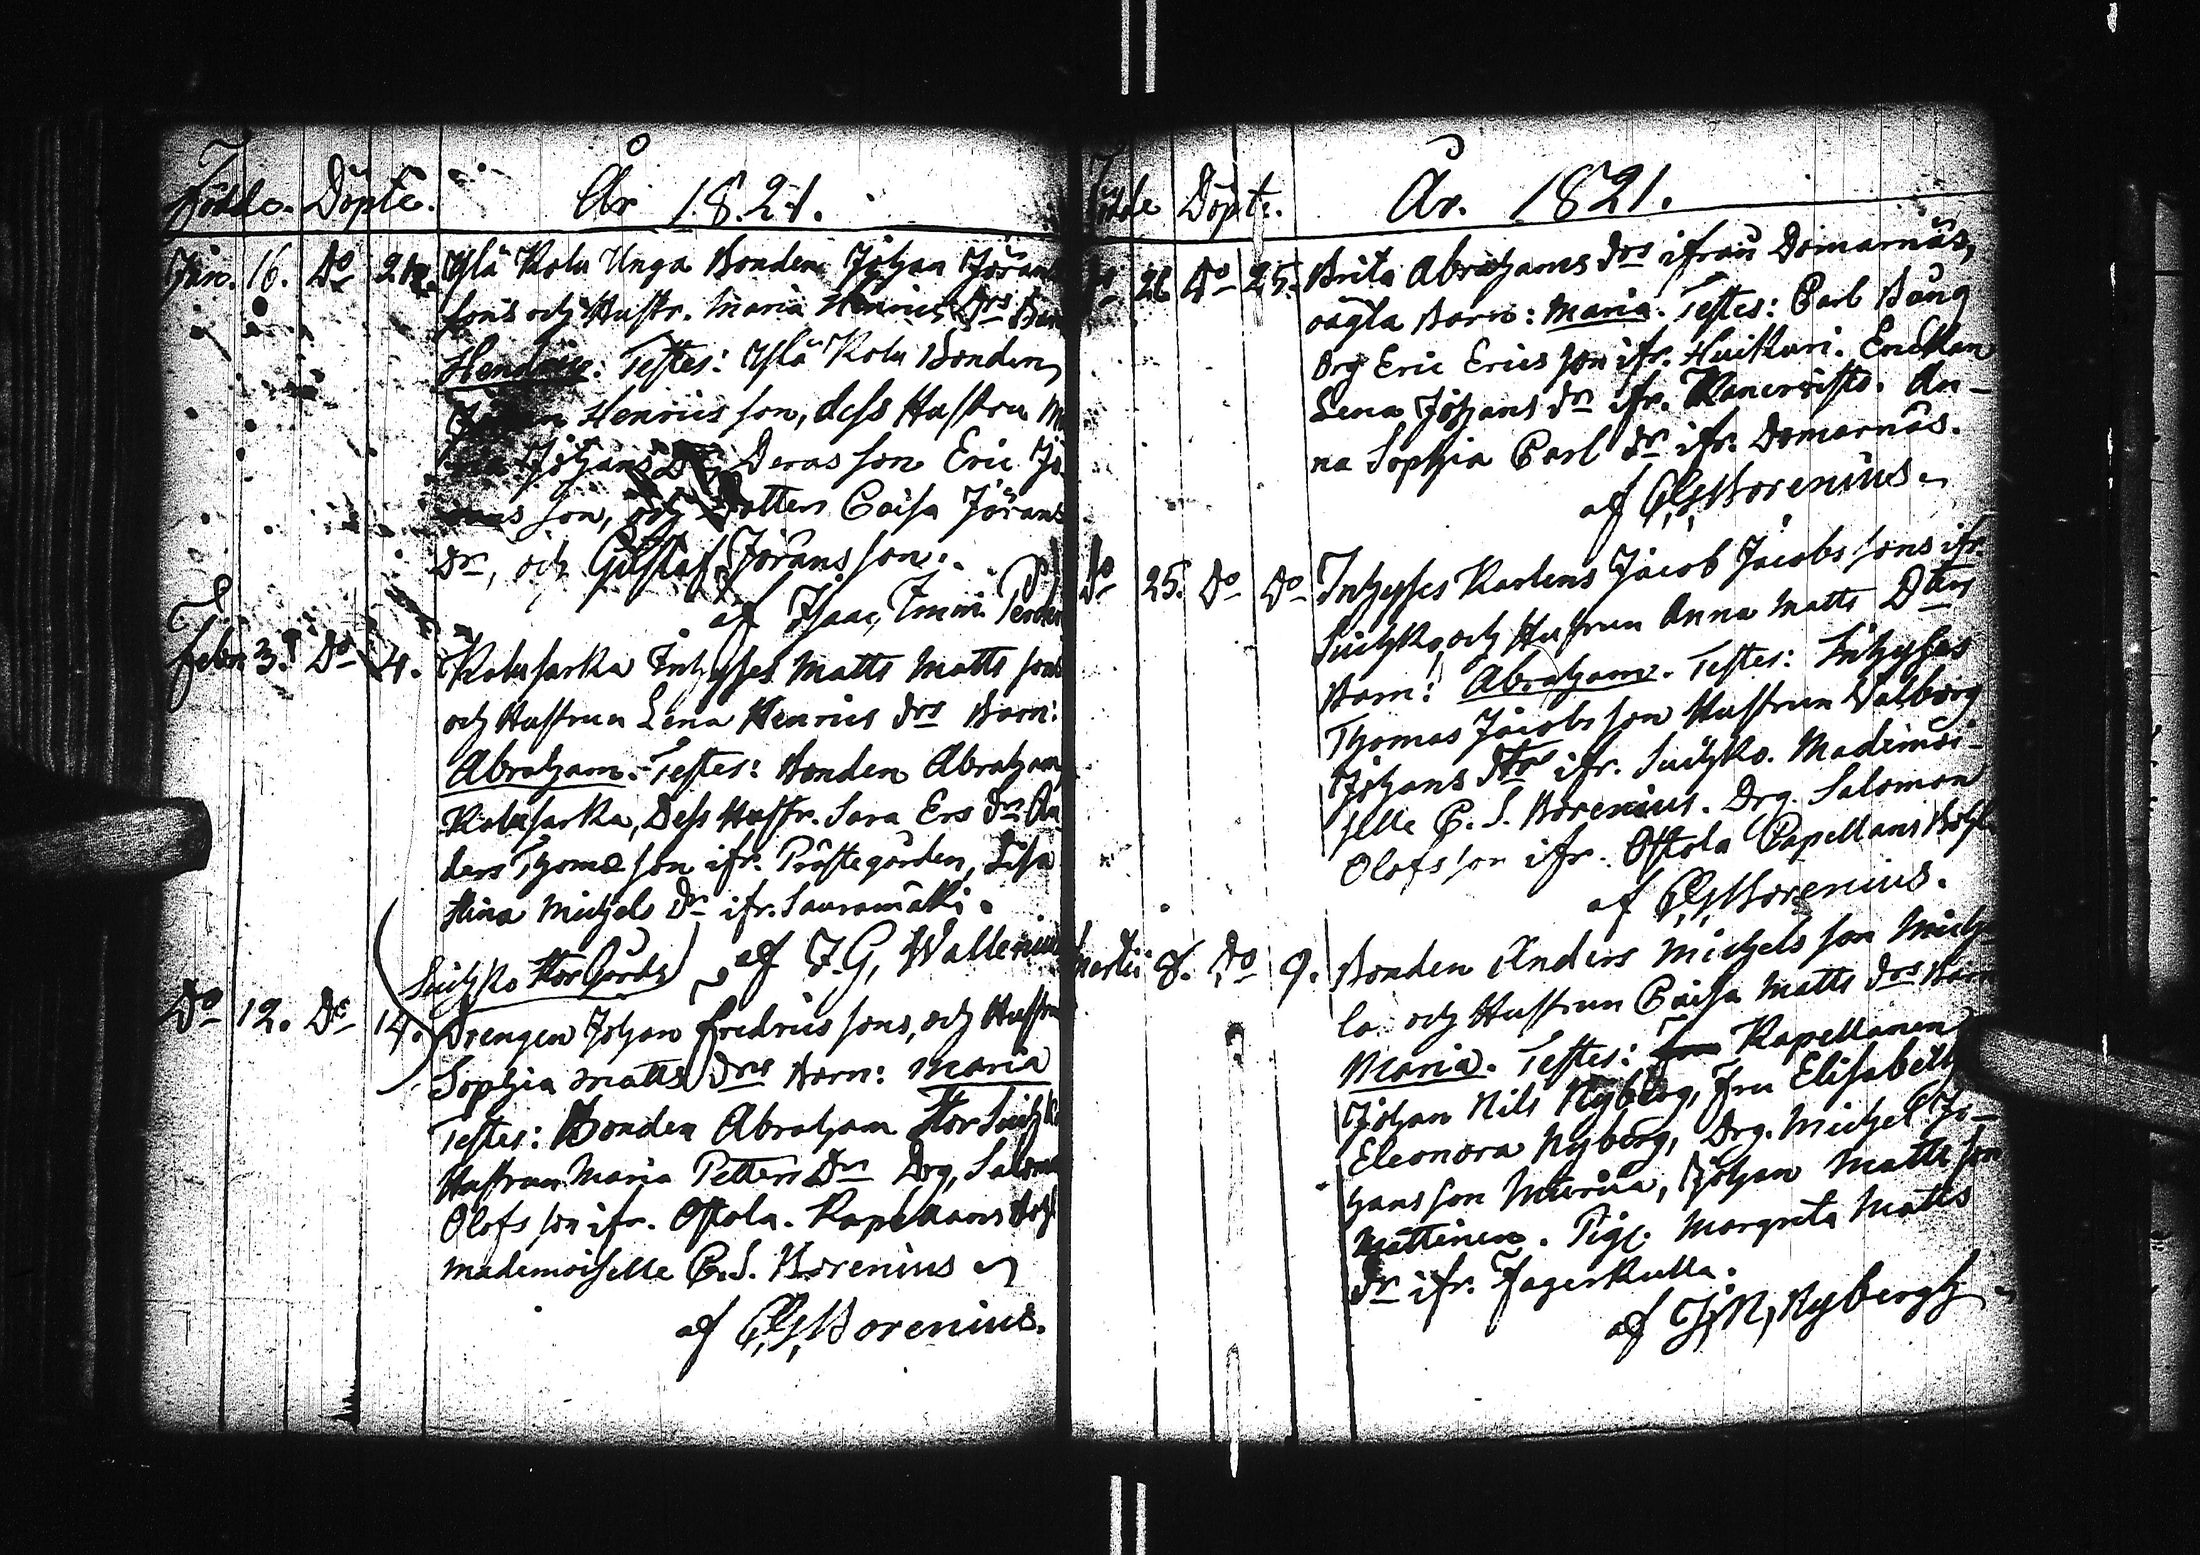 Födde. Döpte. År 1821.
Jan. 16. Do 21. Ylä Kolu Unga Bonden Johan Jörans
sons och Hustr. Maria Henrics Drs Barn
Hendric. Testes: Ylä Kolu Bonden
Henrics son, dess Hustru Ma
ria Johans Dr, Deras son Eric Jö
rans son, och Dotter Caisa Jörans
Dr, och Gustaf Jörans son.
af Isaac Imm.
Febr. 3. Do 4. Kolusarka Inhyses Matts Matts sons
och Hustrun Lena Henrics drs Barn:
Abraham. Testes: Bonden Abraham
Kolusarka, Dess Hustr. Sara Ers dr. An
ders Thomæ son ifr. Prästegården, Lisa
Stina Michels Dr ifr. Sauramäki.
af J. G. Wallenius
Suihko Stor Gårds
Do 12. Do 14. Drengen Johan Fredrics sons, och Hustrun
Sophia Matts Drs Barn: Maria
Testes: Bonden Abraham Stor Suihko
Hustrun Maria Petters Dr Drg. Salomon
Olofs son ifr. Ostola. Kapellans Bohl
Mademoiselle C. S. Borenius
af C. G. Borenius.
Födde Döpte. År. 1821.
Do 26 Do 25. Brita Abrahams drs ifrån Domarnäs,
oägta Barn: Maria. Testes: Carl Bång
Drg Eric Erics son ifr. Huikuri. Enckan
Lena Johans dr ifr. An-
na Sophia Carl dr ifr. Domarnäs.
af C. G. Borenius
Do 25. Do Do Inhyses Karlens Jacob Jacobs sons ifr.
Suihko, och Hustrun Anna Matts Dters
Barn: Abraham. Testes: Inhyses
Thomas Jacobs son Hustrun Valborg
Johans dtr ifr. Suihko. Mademoi-
selle C. S. Borenius. Drg. Salomon
Olofs son ifr. Ostola Capellans Bohl
af C. G. Borenius.
Martii 8. Do 9. Bonden Anders Michels son Mich
la och Hustrun Caisa Matts drs Barn
Maria. Testes: Kapellanen
Johan Nils Nyberg, Fru Elisabeth
Eleonora Nyberg, Drg. Michel Jo-
hans son Johan Matts son
Mattinen. Pig. Margreta Matts
dr ifr. Jagerkulla.
af J. N. Nybergh